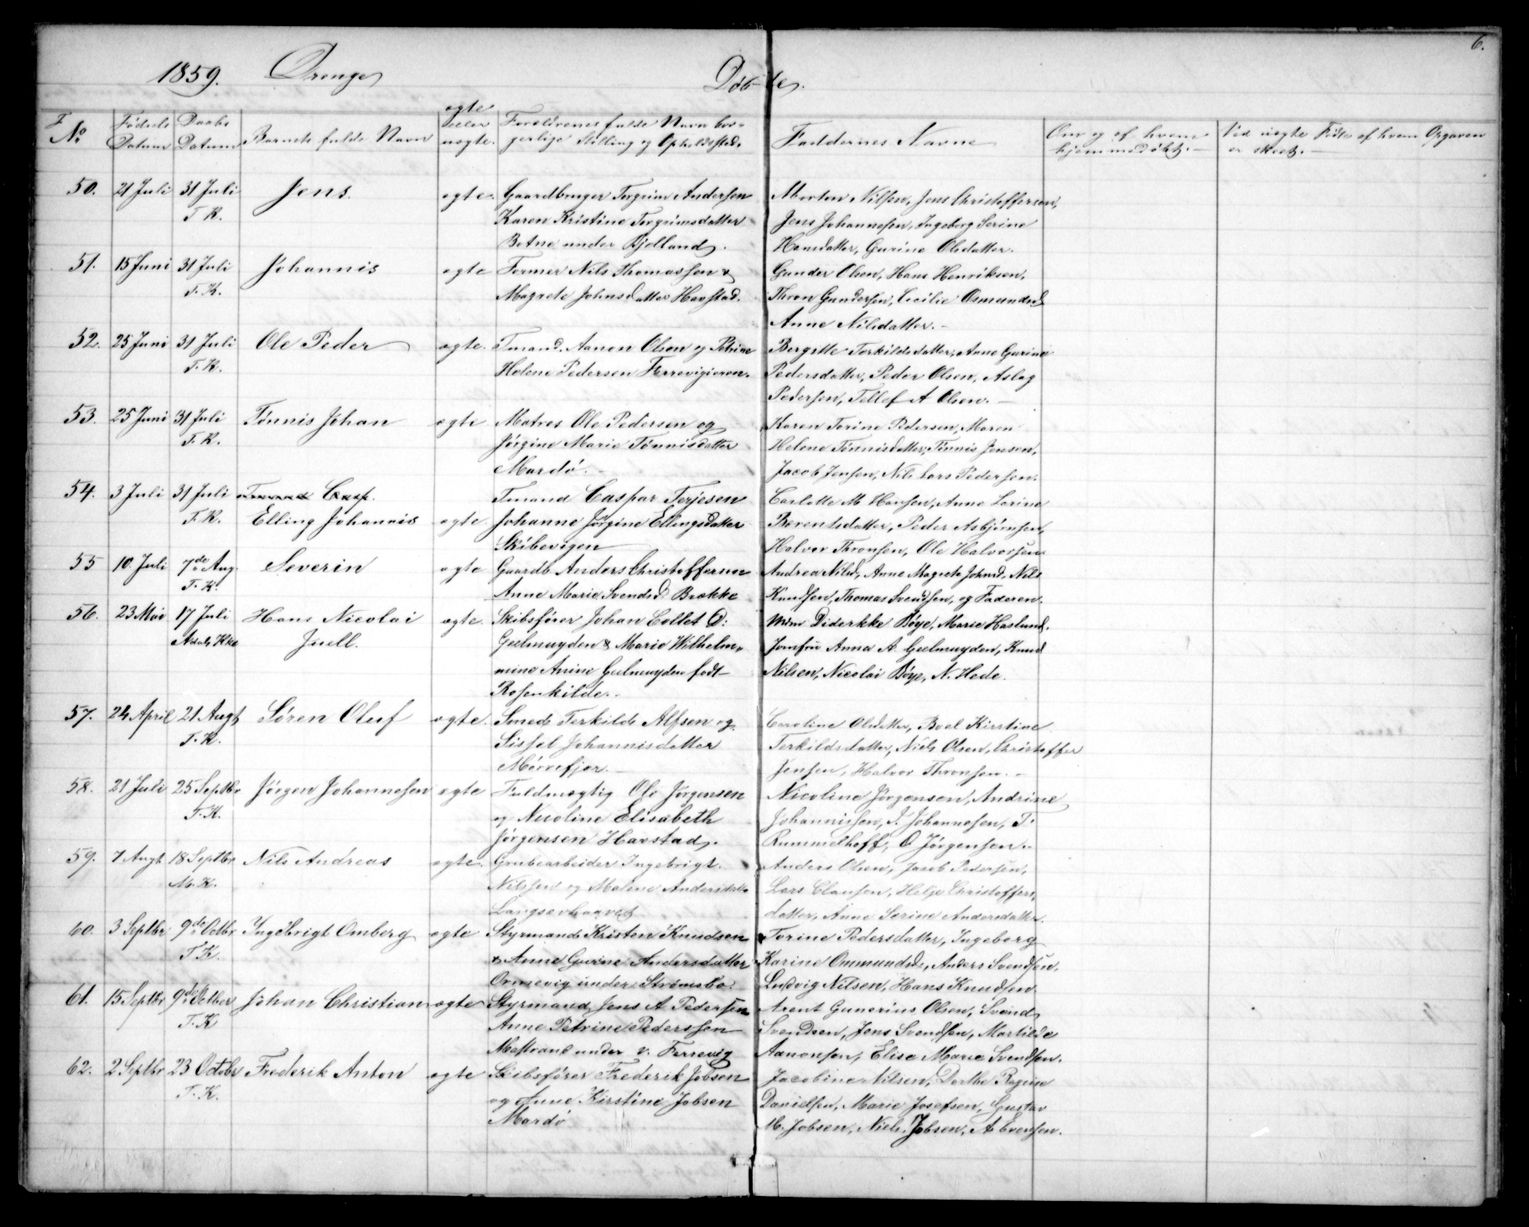 6.
1859. Drenge Døbte.
No Fødsels Datum Daabs Datum Barnets fulde Navn ægte eller uægte. Forældrenes fulde Navn bor- gerlige Stilling og Opholdssted. Faddernes Navne Om og af hvem hjemmedøbt. Ved uægte Født af hvem Opgaven er skeet.
50. 21 Juli 31 Juli Jens. ægte. Gaardbruger Torgrim Andersen Morten Nilsen, Jens Christoffersen,
T. K. Karen Kristine Torgrimsdatter Jens Johannesen, Ingeborg Serine
Botne under Bjelland. Hansdatter, Gurine Olsdatter.
51. 15 Juni 31 Juli Johannis ægte Former Nils Thomassen & Gunder Olsen, Hans Henriksen,
T. K. Magrete Johnsdatter Havstad. Thron Gundersen, Cecilie Osmundsd
Anne Nilsdatter.
52. 25 Juni 31 Juli Ole Peder ægte. Tmand. Aanon Olsen og Petrine Bergitte Terkildsdatter, Anne Gurine
T. K. Helene Pedersen Færrevigieren. Pedersdatter, Peder Olsen, Aslag
Pedersen, Tellef A Olsen.
53. 25 Juni 31 Juli Tønnis Johan ægte Matros Ole Pedersen og Karen Torine Pedersen, Maren
T. K. Jørgine Marie Tønnisdatter Helene Tønnisdatter, Tønnis Jensen,
Mardø. Jacob Jensen, Nils Lars Pedersen.
54. 3 Juli 31 Juli Casp. Tmand Caspar Terjesen Carlotte M. Hansen, Anne Lorine
T. K. Elling Johannis ægte Johanne Jørgine Ellingsdatter Berentsdatter, Peder Asbjørnsen,
Skibevigen Halvor Thronsen, Ole Halvorsen
55 10. Juli 7de Aug. Severin ægte Gaardb Anders Christoffersen Andrea Nilsd, Anne Magrete Johnsd, Nils
T. K. Anne Marie Svendsd Brække Knudsen, Thomas Svendsen, og Faderen.
56. 23 Mai 17 Juli Hans Nicolai ægte. Skibsfører Johan Collet O: Diderkke Bøye, Marie Haslund.
Arendals Kke Juell. Geelmuyden & Marie Wilhelm- Jomfru Anna A Geelmuyden, Knud
mine Anine Geelmuyden født Nilsen, Nicolai Bøye, N. Hede.
Rosenkilde.
57. 24 April 21 Augt Søren Oluf ægte. Smeds Terkilds Alfsen og Caroline Olsdatter, Boel Kirstine
T. K. Sissel Johannisdatter Terkildsdatter, Niels Olsen, Christoffer
Mørrefjær. Jensen, Halvor Thronsen.
58. 21 Juli 25 Septbr Jørgen Johannesen ægte Fuldmægtig Ole Jørgensen Nicoline Jørgensen, Andrine
T. K. og Nicoline Elisabeth Johannissen, J. Johannesen, T.
Jørgensen Havstad. Rummelhoff, O Jørgensen.
59. 7 Augt 18 Septbr Nils Andreas ægte. Grubearbeider Ingebrigt Anders Olsen, Jacob Pedersen,
M. K. Nilsen og Malene Andersdatter Lars Clausen, Helje Christoffers,
Langsævhaavet datter, Anne Serine Andersdatter.
60. 3 Septbr 9de Octbr Ingebrigt Omberg ægte Styrmand Kristen Knudsen Torine Pedersdatter, Ingeborg
T. K. & Anne Gurine Andersdatter Karine Ommundsd, Anders Svendsen.
Ormevig under Strømsbo. Ludvig Nilsen, Hans Knudsen
61. 15 Septbr 9de Octber Johan Christian ægte Styrmand Jens A Pedersen Arent Gunerius Olsen, Svend
T. K Anne Petrine Pedersen Svendsen, Jens Svendsen, Martilde
Mastrand under v. Færrevig Aanonsen, Elise Marie Svendsen.
62. 2 Septbr 23 Octobr Frederik Anton ægte Skibsfører Frederik Jobsen Jacobine Nilsen, Dorthe Regine
T. K. og Anne Kirstine Jobsen Danielsen, Marie Josefsen, Gustav
Mardø M. Jobsen, Niels Jobsen, A Evensen.